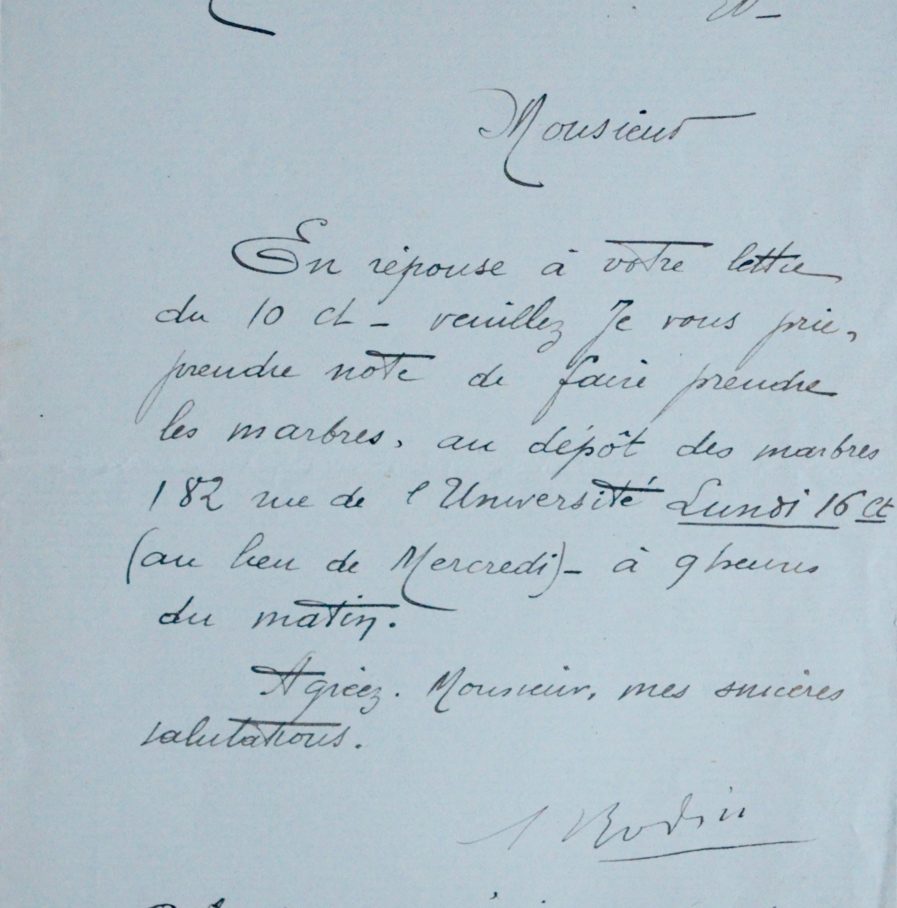 Monsieur
En réponse à votre lettre
du 10 ct - veuillez Je vous prie,
prendre note de faire prendre
les marbres, au dépôt des marbres
182 rue de l'Université Lundi 16 ct
(au lieu de Mercredi) - à 9 heures
du matin.
Agréez. Monsieur, mes sincères
salutations.
A Rodin